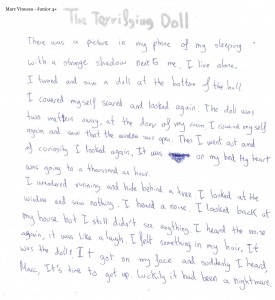 Marc Vinuesa - Junior 4a
The Terrifying Doll
There was a picture in my phone of my sleeping
with a strange shadow next to me. I live alone.
I turned and saw a doll at the bottom of the hall
I covered myself scared and looked again. The doll was
two metters away, at the door of my room, I covered myself
again and saw that the window was open. Then I went out and
of curiosity I looked again. It was on my bed My heart
was going to a thousand as hour.
I wandered running and hide behind a tree I looked at the
window and saw nothing. I heard a noise. I looked back at
my house but I still didn't see anything I heard the noise
again, it was like a laugh. I felt something in my hair, It
was the doll! It got on my face and suddenly I heard
Marc, It's time to get up. Luckily it had been a nightmare